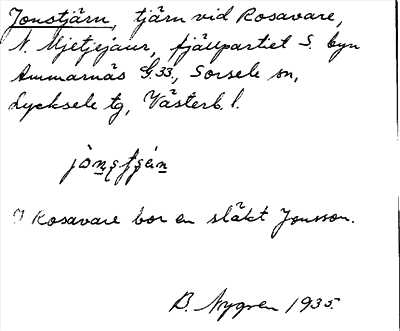 Jonstjärn, tjärn vid Rosavare,
N. Mjetjejaur, fjällpartiet S. byn
Ammarnäs G.33, Sorsele sn,
Lycksele tg, Västerb. l.
I Rosavare bor en släkt Jonsson.
B. Nygren 1935.